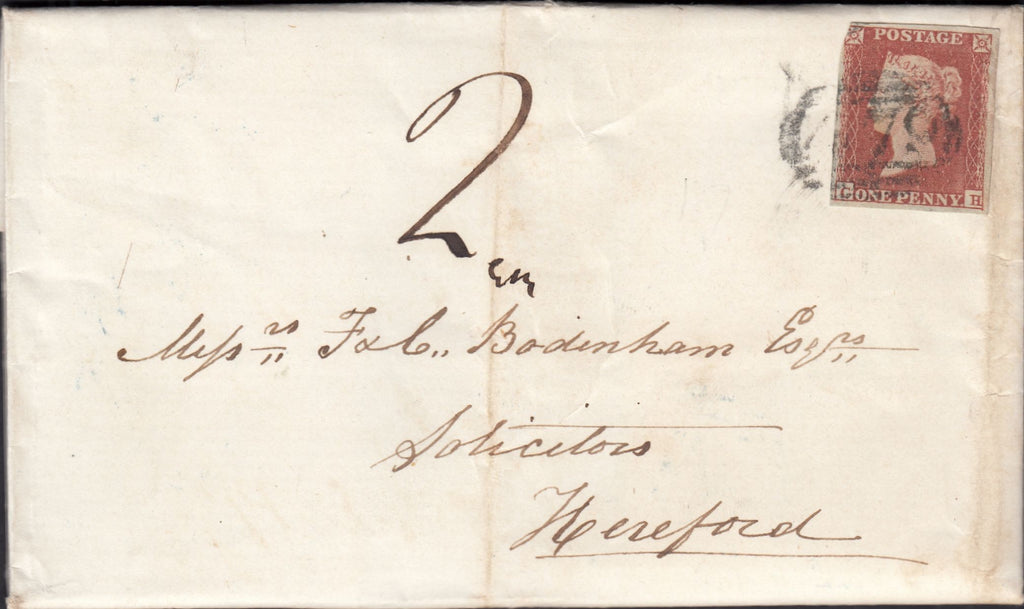 POSTAGE
2
G ONE PENNY H
Messrs F & C Bodenham Esqrs
Solicitors
Hereford